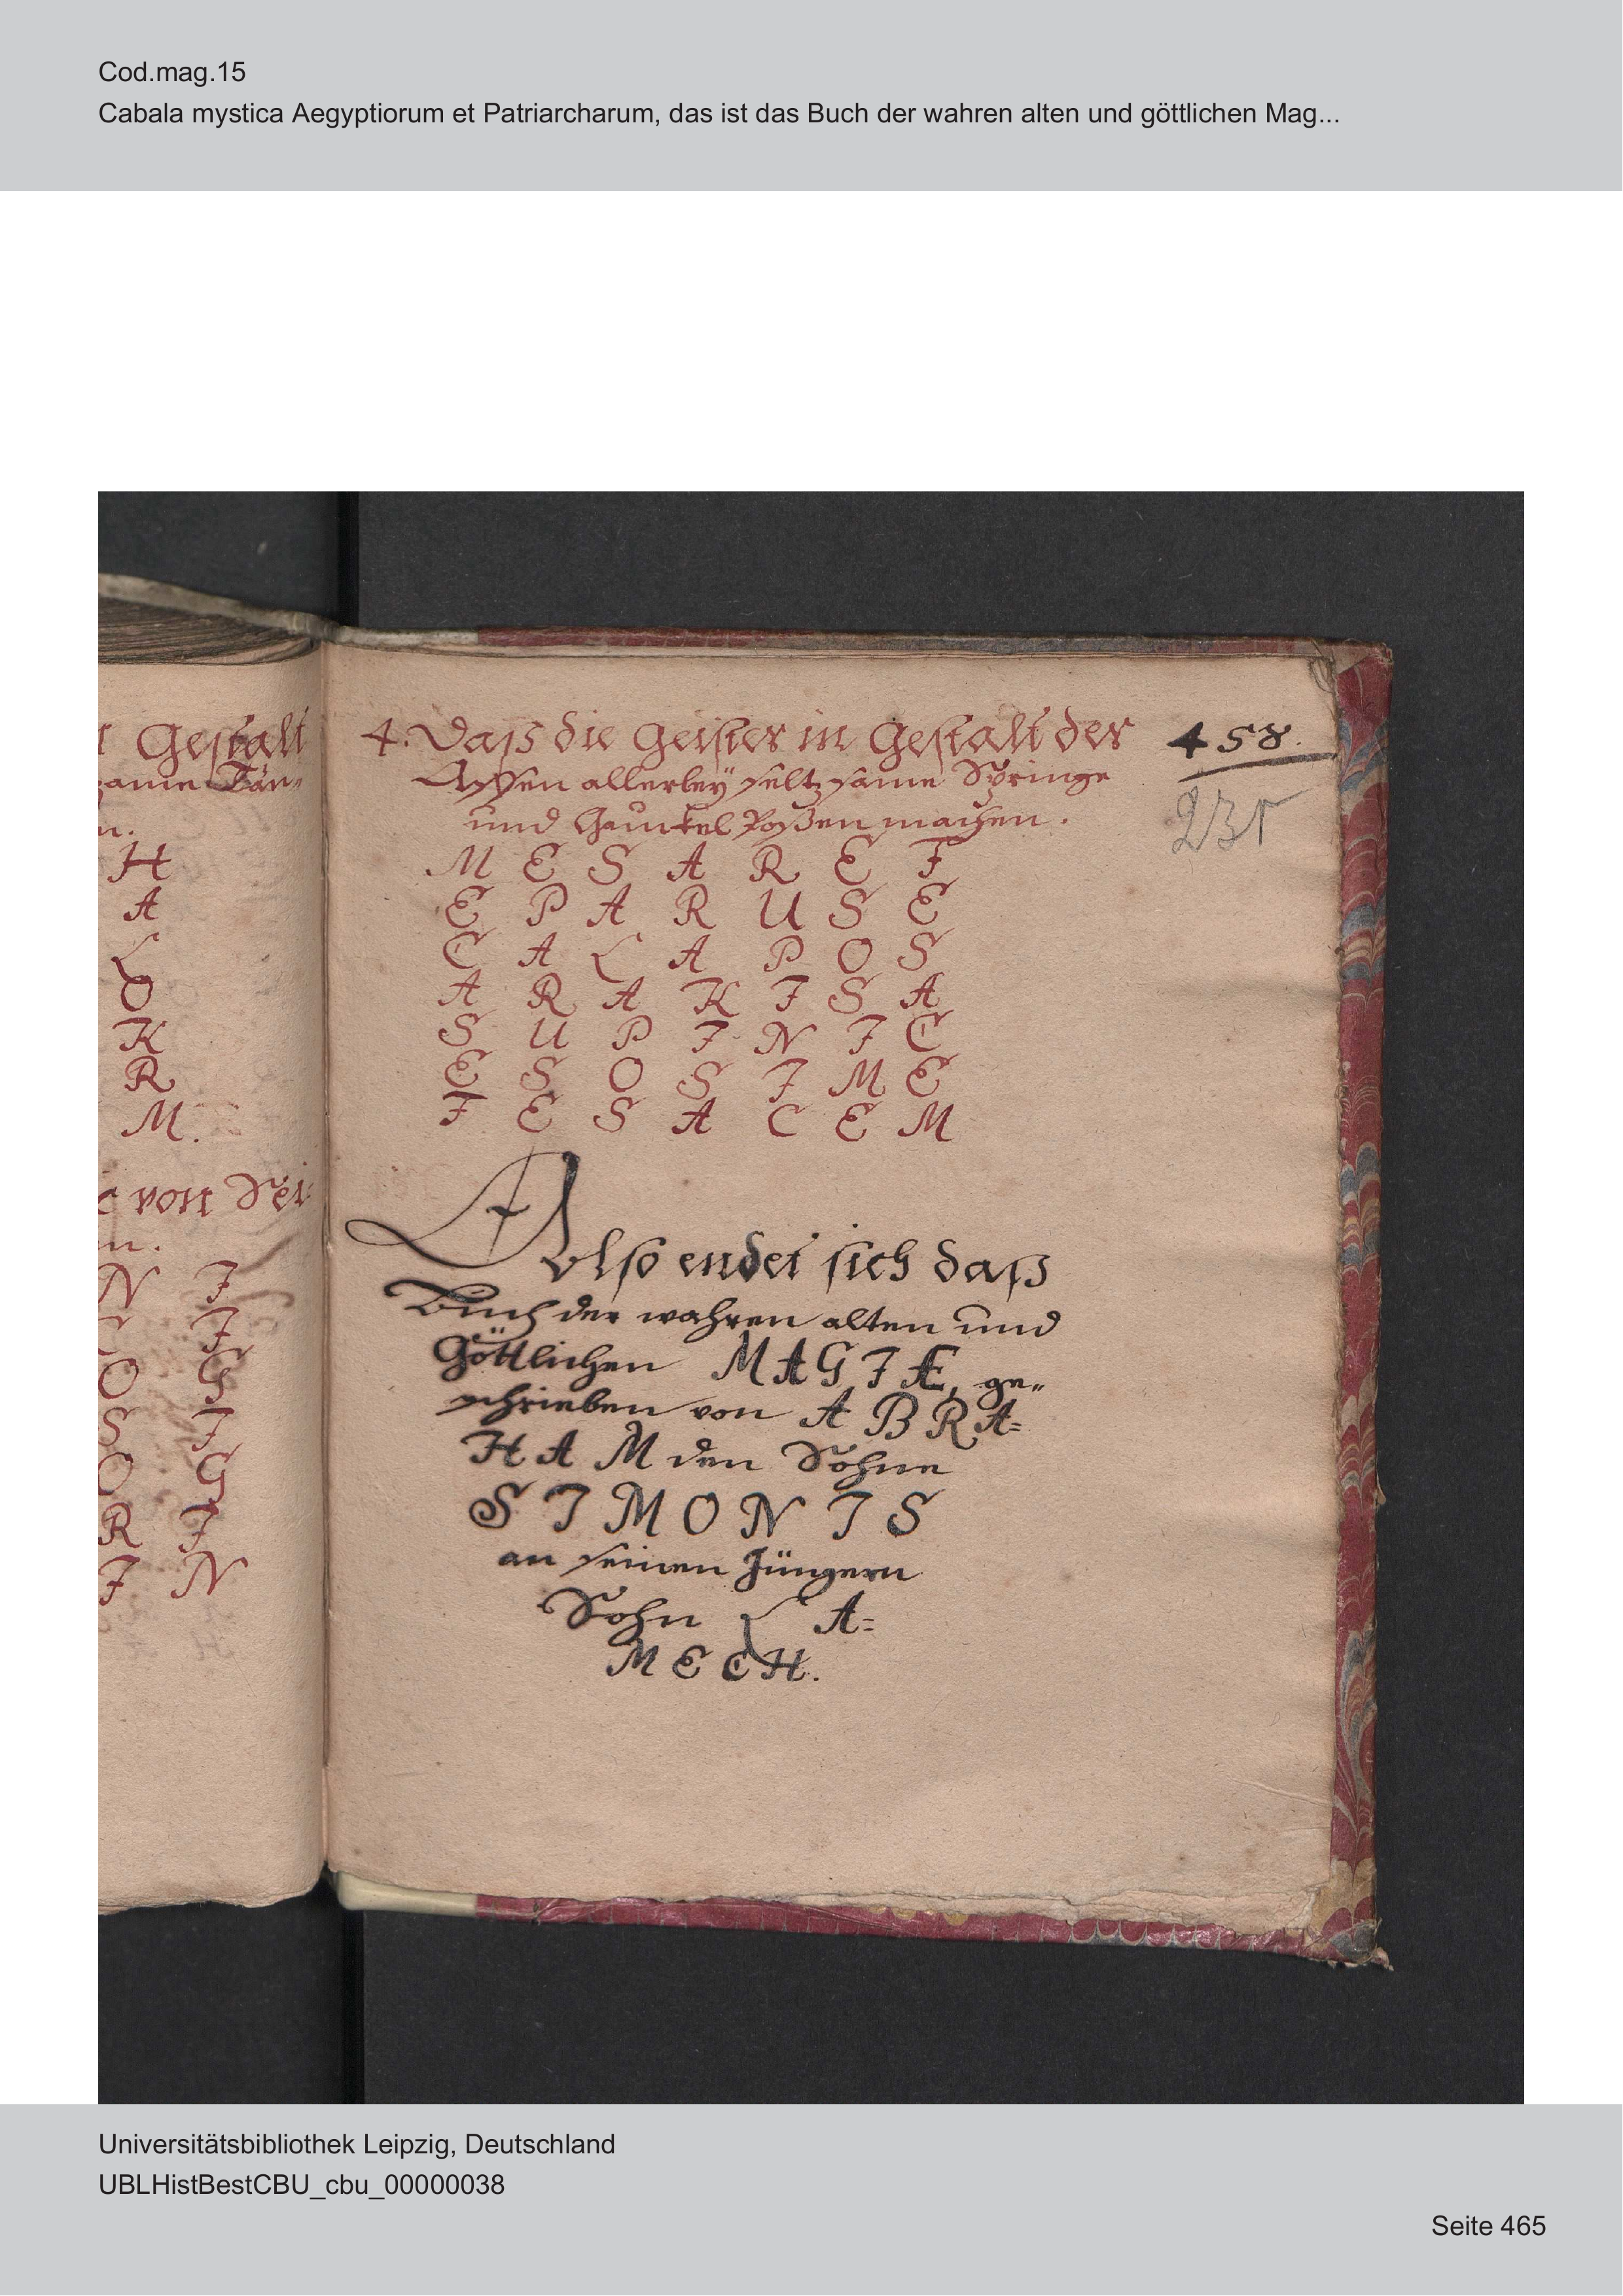 Cod.mag.15
Cabala mystica Aegyptiorum et Patriarcharum, das ist das Buch der wahren alten und göttlichen Mag...
Gestalt
same Tän-
n.
H
A
L
O
K
R
M.
von Sei-
n.
N I
I
O G
S I
O G
R I
I N
4. Daß die Geister in Gestalt der
Affen allerleÿ seltzsame Springe
und Gaunkel Poßen machen.
458.
231
M E S A R E F
E P A R U S E
C A L A P O S
A R A K I S A
S U P I N I C
E S O S I M E
F E S A C E M
Also endet sich daß
Buch der wahren alten und
Göttlichen MAGIÆ, ge„
schrieben von A B R A=
H A M den Sohne
S I M O N I S
an seinen Jüngern
Sohn L A=
M E C H.
Universitätsbibliothek Leipzig, Deutschland
UBLHistBestCBU_cbu_00000038
Seite 465